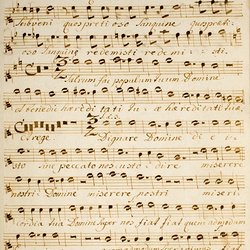 subveni quos preti oso Sanguine quos preti
oso Sanguine redemisti redemi sti
Salvum fac populum tuum Domine
et benedic haeredi tati tuae haereditati tuae
et rege Dignare Domine di e i
sto sine peccato nos custo dire miserere
nostri Domine miserere nostri miseri
cordia tua Domine super nos fiat fiat